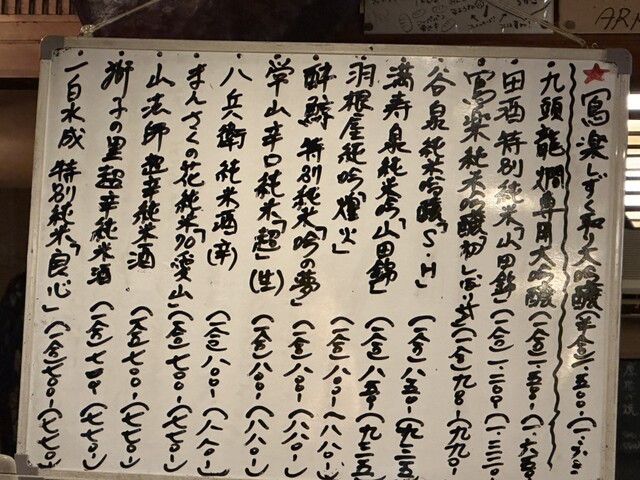 ★寫楽しずく取り大吟醸(半合)一、五〇〇-
九頭龍燗専用大吟醸(一合)一、五〇〇-(一、六五〇-)
田酒特別純米「山田錦」(一合)一、二〇〇-(一、三二〇-)
寫楽純米吟醸「初しぼり」(一合)九〇〇-(九九〇-)
谷泉純米吟醸「S・H」(一合)八五〇-(九三五-)
満寿泉純米吟「山田錦」(一合)八五〇-(九三五-)
羽根屋純吟「煌火」(一合)八〇〇-(八八〇-)
酔鯨特別純米「吟の夢」(一合)八〇〇-(八八〇-)
常山辛口純米「超」(生)(一合)八〇〇-(八八〇-)
八兵衛純米酒(辛)(一合)八〇〇-(八八〇-)
まんさくの花純米「70愛山」(一合)七〇〇-(七七〇-)
山法師超辛純米酒(一合)七〇〇-(七七〇-)
獅子の里超辛純米酒(一合)七〇〇-(七七〇-)
一白水成特別純米「良心」(一合)七〇〇-(七七〇-)